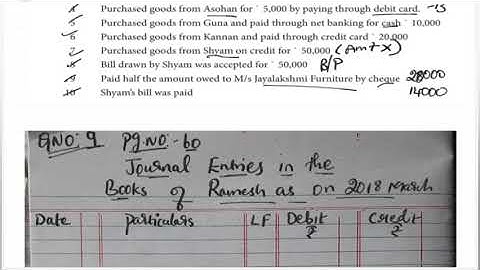 4 Purchased goods from Asohan for ` 5,000 by paying through debit card. -15
5 Purchased goods from Guna and paid through net banking for cash ` 10,000
6 Purchased goods from Kannan and paid through credit card ` 20,000
7 Purchased goods from Shyam on credit for ` 50,000 (Amt X)
8 Bill drawn by Shyam was accepted for ` 50,000 B/P
9 Paid half the amount owed to M/s Jayalakshmi Furniture by cheque 28000
10 Shyam's bill was paid 14000
QNO: 9 Pg.NO:-60
Journal Entries in the
Books of Ramesh as on 2018 March
Date Particulars LF Debit ₹ Credit ₹